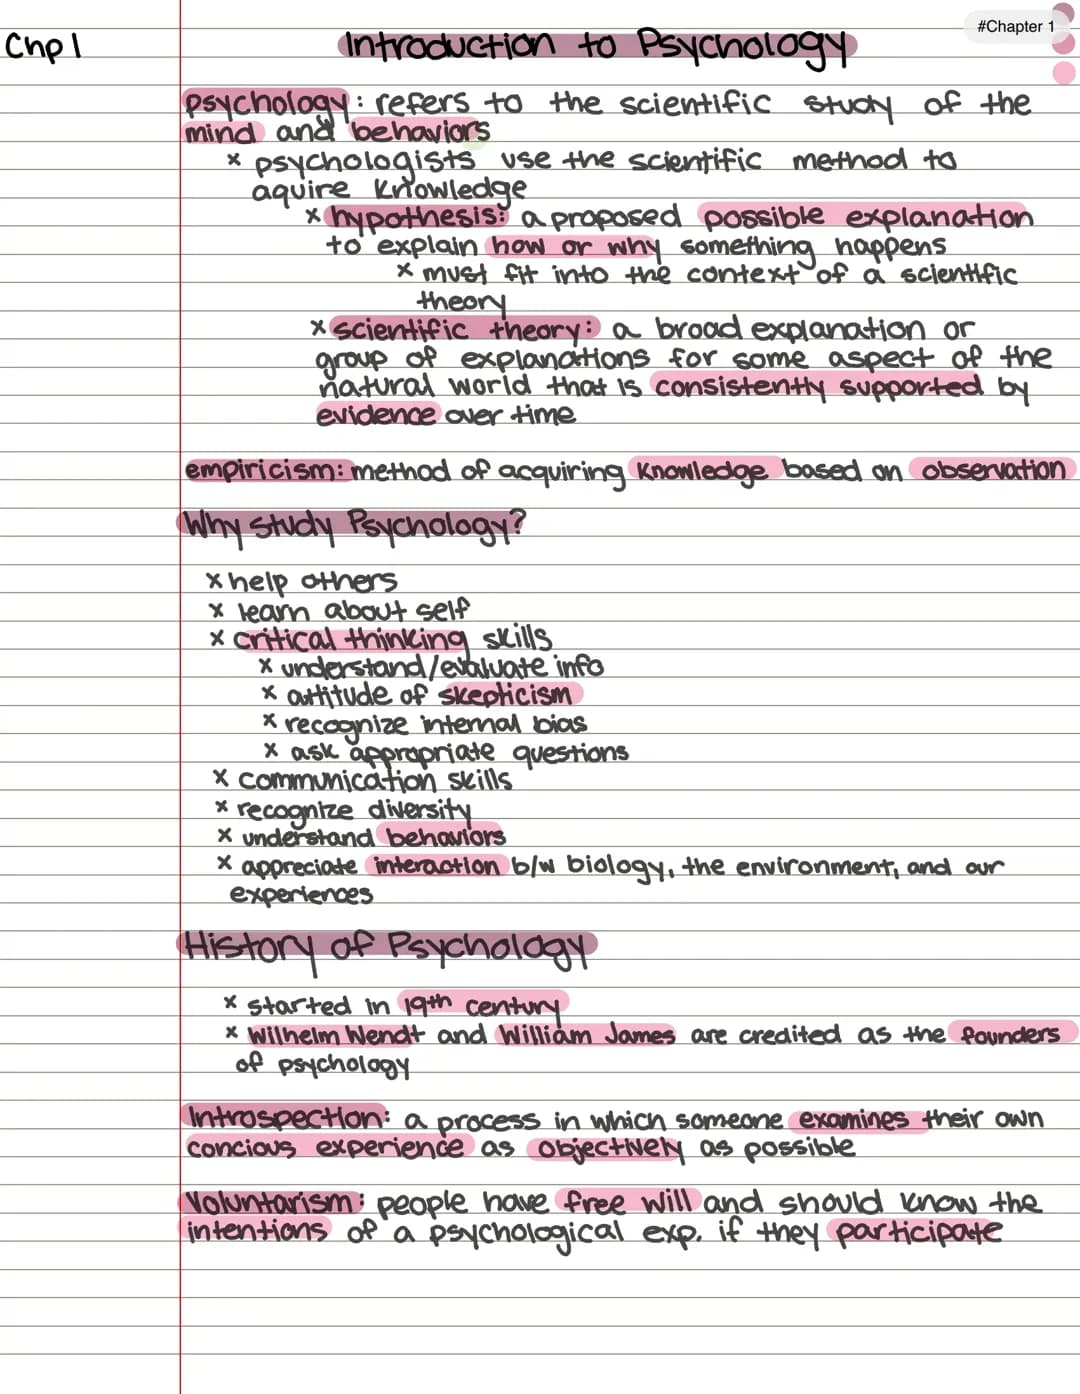 #Chapter 1
Chp 1
Introduction to Psychology
psychology: refers to the scientific study of the
mind and behaviors
x psychologists use the scientific method to
aquire knowledge
x hypothesis: a proposed possible explanation
to explain how or why something happens
x must fit into the context of a scientific
theory
x scientific theory: a broad explanation or
group of explanations for some aspect of the
natural world that is consistently supported by
evidence over time
empiricism: method of acquiring knowledge based on observation
Why study Psychology?
x help others
x learn about self
x critical thinking skills
x understand/evaluate info
x attitude of skepticism
x recognize internal bias
x ask appropriate questions
x communication skills
x recognize diversity
x understand behaviors
x appreciate interaction b/w biology, the environment, and our
experiences
History of Psychology
x started in 19th century
x Wilhelm Wendt and William James are credited as the founders
of psychology
Introspection: a process in which someone examines their own
concious experience as objectively as possible
Voluntarism: people have free will and should know the
intentions of a psychological exp. if they participate